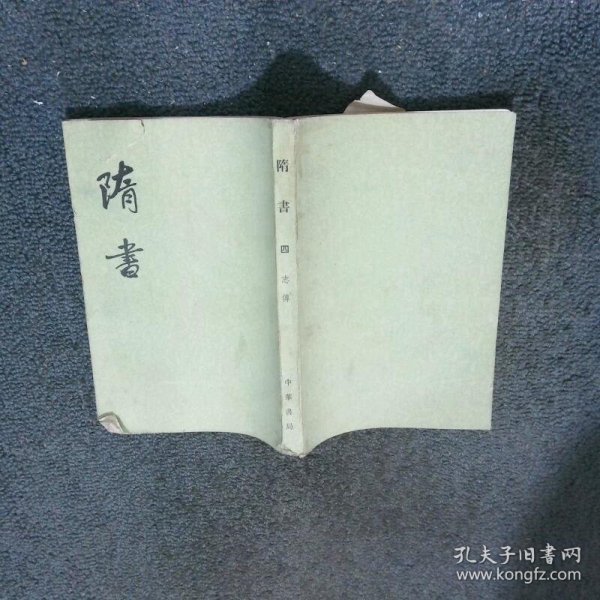 隋書
隋書 四 志傳 中華書局
孔夫子旧書网
www.kongfz.com